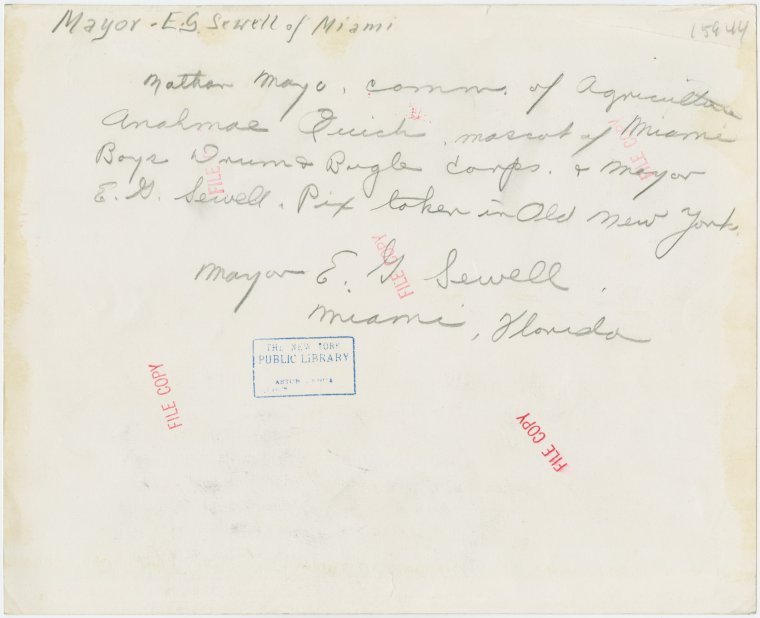 Mayor - E.G. Sewell of Miami
15944
Nathan Mayo, comm. of Agriculture
Anahmae, mascot of Miami
Boys Drum & Bugle Corps. & Mayor
E. G. Sewell. Pix taken in Old New York.
Mayor E. G Sewell,
Miami, Florida
FILE COPY
FILE COPY
FILE COPY
THE NEW YORK
PUBLIC LIBRARY
ASTOR
FILE COPY
FILE COPY